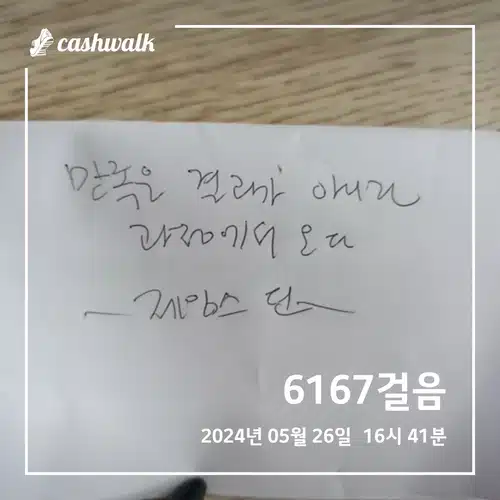 cashwalk
만족은 결과가 아니라
과정에서 온다
~제임스 딘~
6167걸음
2024년 05월 26일 16시 41분